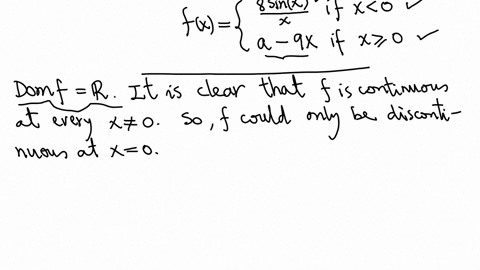 f(x) = { 8sin(x)/x if x<0 ✓
a - 9x if x ≥ 0 ✓
Dom f = R. It is clear that f is continuous
at every x ≠ 0. So, f could only be disconti-
nuous at x = 0.